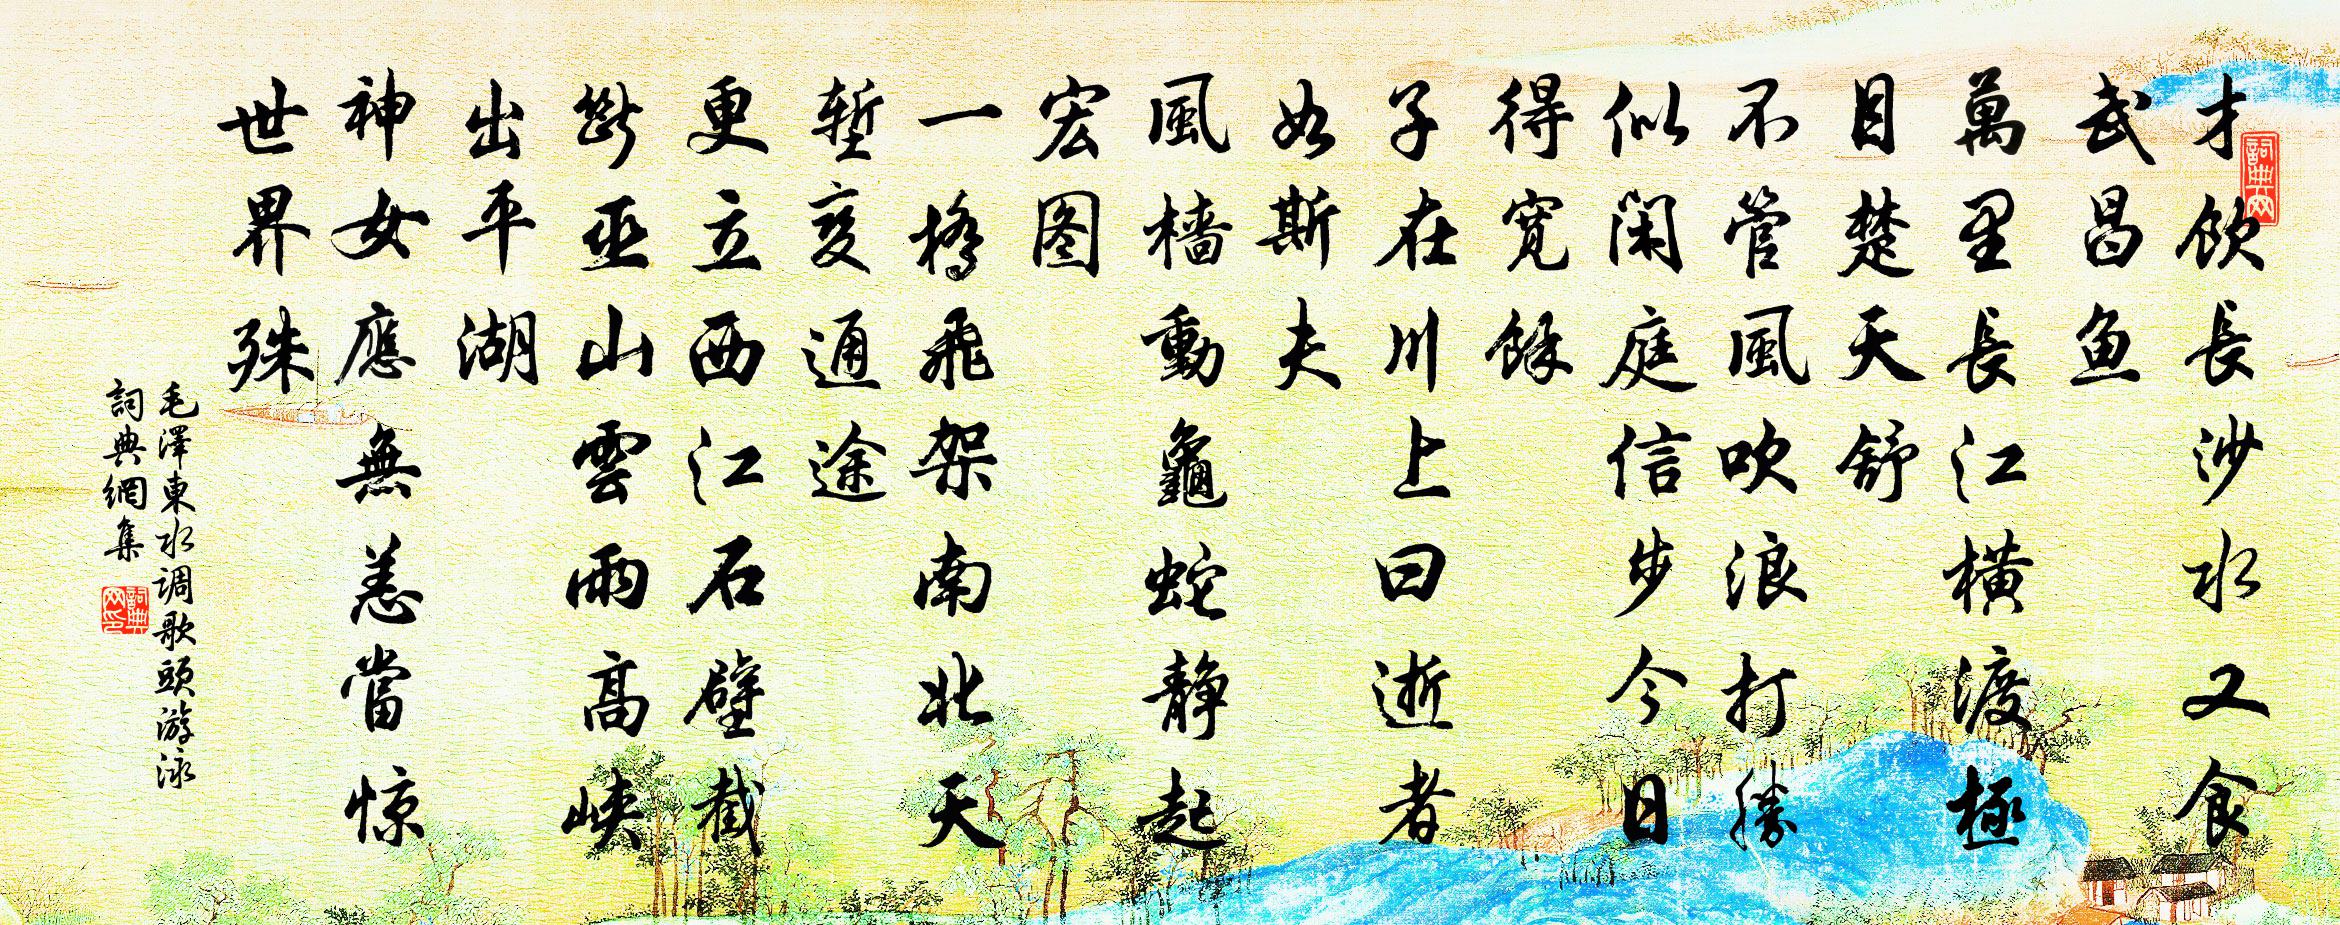 才飲長沙水又食
武昌魚
萬里長江橫渡極
目楚天舒
不管風吹浪打勝
似閑庭信步今日
得寬餘
子在川上曰逝者
如斯夫
風檣動龜蛇静起
宏图
一橋飛架南北天
塹变通途
更立西江石壁截
斷巫山雲雨高峡
出平湖
神女應無恙當惊
世界殊
毛澤東水调歌頭游泳
詞典網集
詞典网
詞典网印